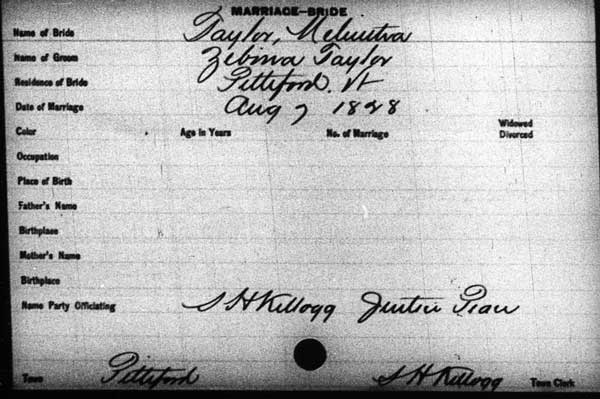 MARRIAGE-BRIDE
Name of Bride Taylor, Melinitva
Name of Groom Zebina Taylor
Residence of Bride Pittsford. Vt
Date of Marriage Aug 7 1828
Color Age in Years No. of Marriage Widowed Divorced
Occupation
Place of Birth
Father's Name
Birthplace
Mother's Name
Birthplace
Name Party Officiating S H Kellogg Justice Peace
Town Pittsford S H Kellogg Town Clerk